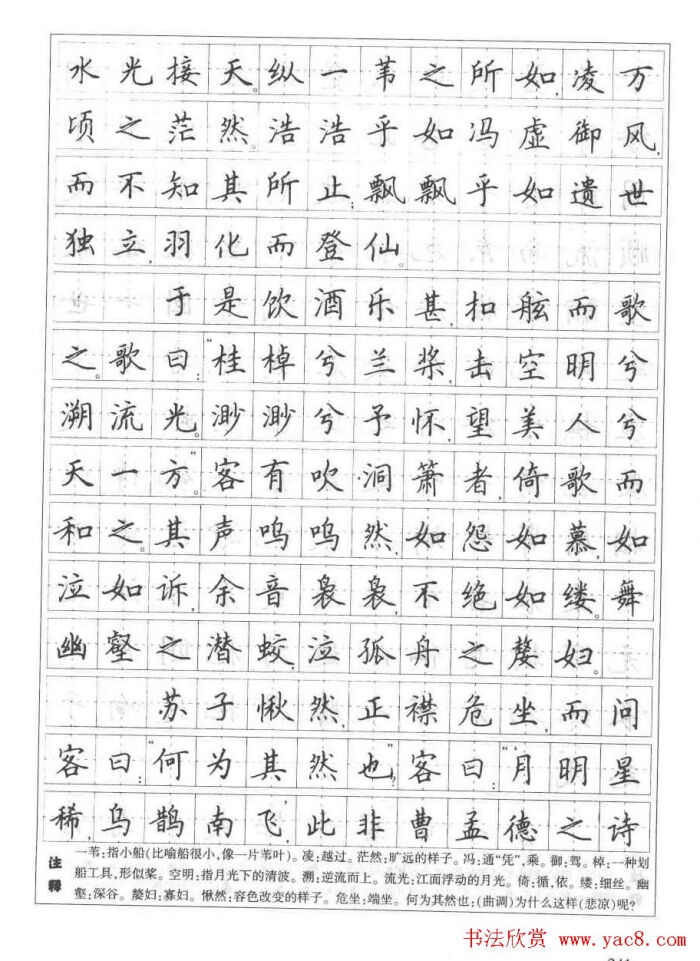 水光接天。纵一苇之所如,凌万
顷之茫然。浩浩乎如冯虚御风,
而不知其所止;飘飘乎如遗世
独立,羽化而登仙。
于是饮酒乐甚,扣舷而歌
之。歌曰:“桂棹兮兰桨,击空明兮
溯流光。渺渺兮予怀,望美人兮
天一方。”客有吹洞箫者,倚歌而
和之。其声呜呜然,如怨如慕,如
泣如诉,余音袅袅,不绝如缕。舞
幽壑之潜蛟,泣孤舟之嫠妇。
苏子愀然,正襟危坐,而问
客曰:“何为其然也?”客曰:“‘月明星
稀,乌鹊南飞’,此非曹孟德之诗
注释
一苇:指小船(比喻船很小,像一片苇叶)。凌:越过。茫然:旷远的样子。冯:通“凭”,乘。御:驾。棹:一种划
船工具,形似桨。空明:指月光下的清波。溯:逆流而上。流光:江面浮动的月光。倚:循,依。缕:细丝。幽
壑:深谷。嫠妇:寡妇。愀然:容色改变的样子。危坐:端坐。何为其然也:(曲调)为什么这样(悲凉)呢?
书法欣赏 www.yac8.com